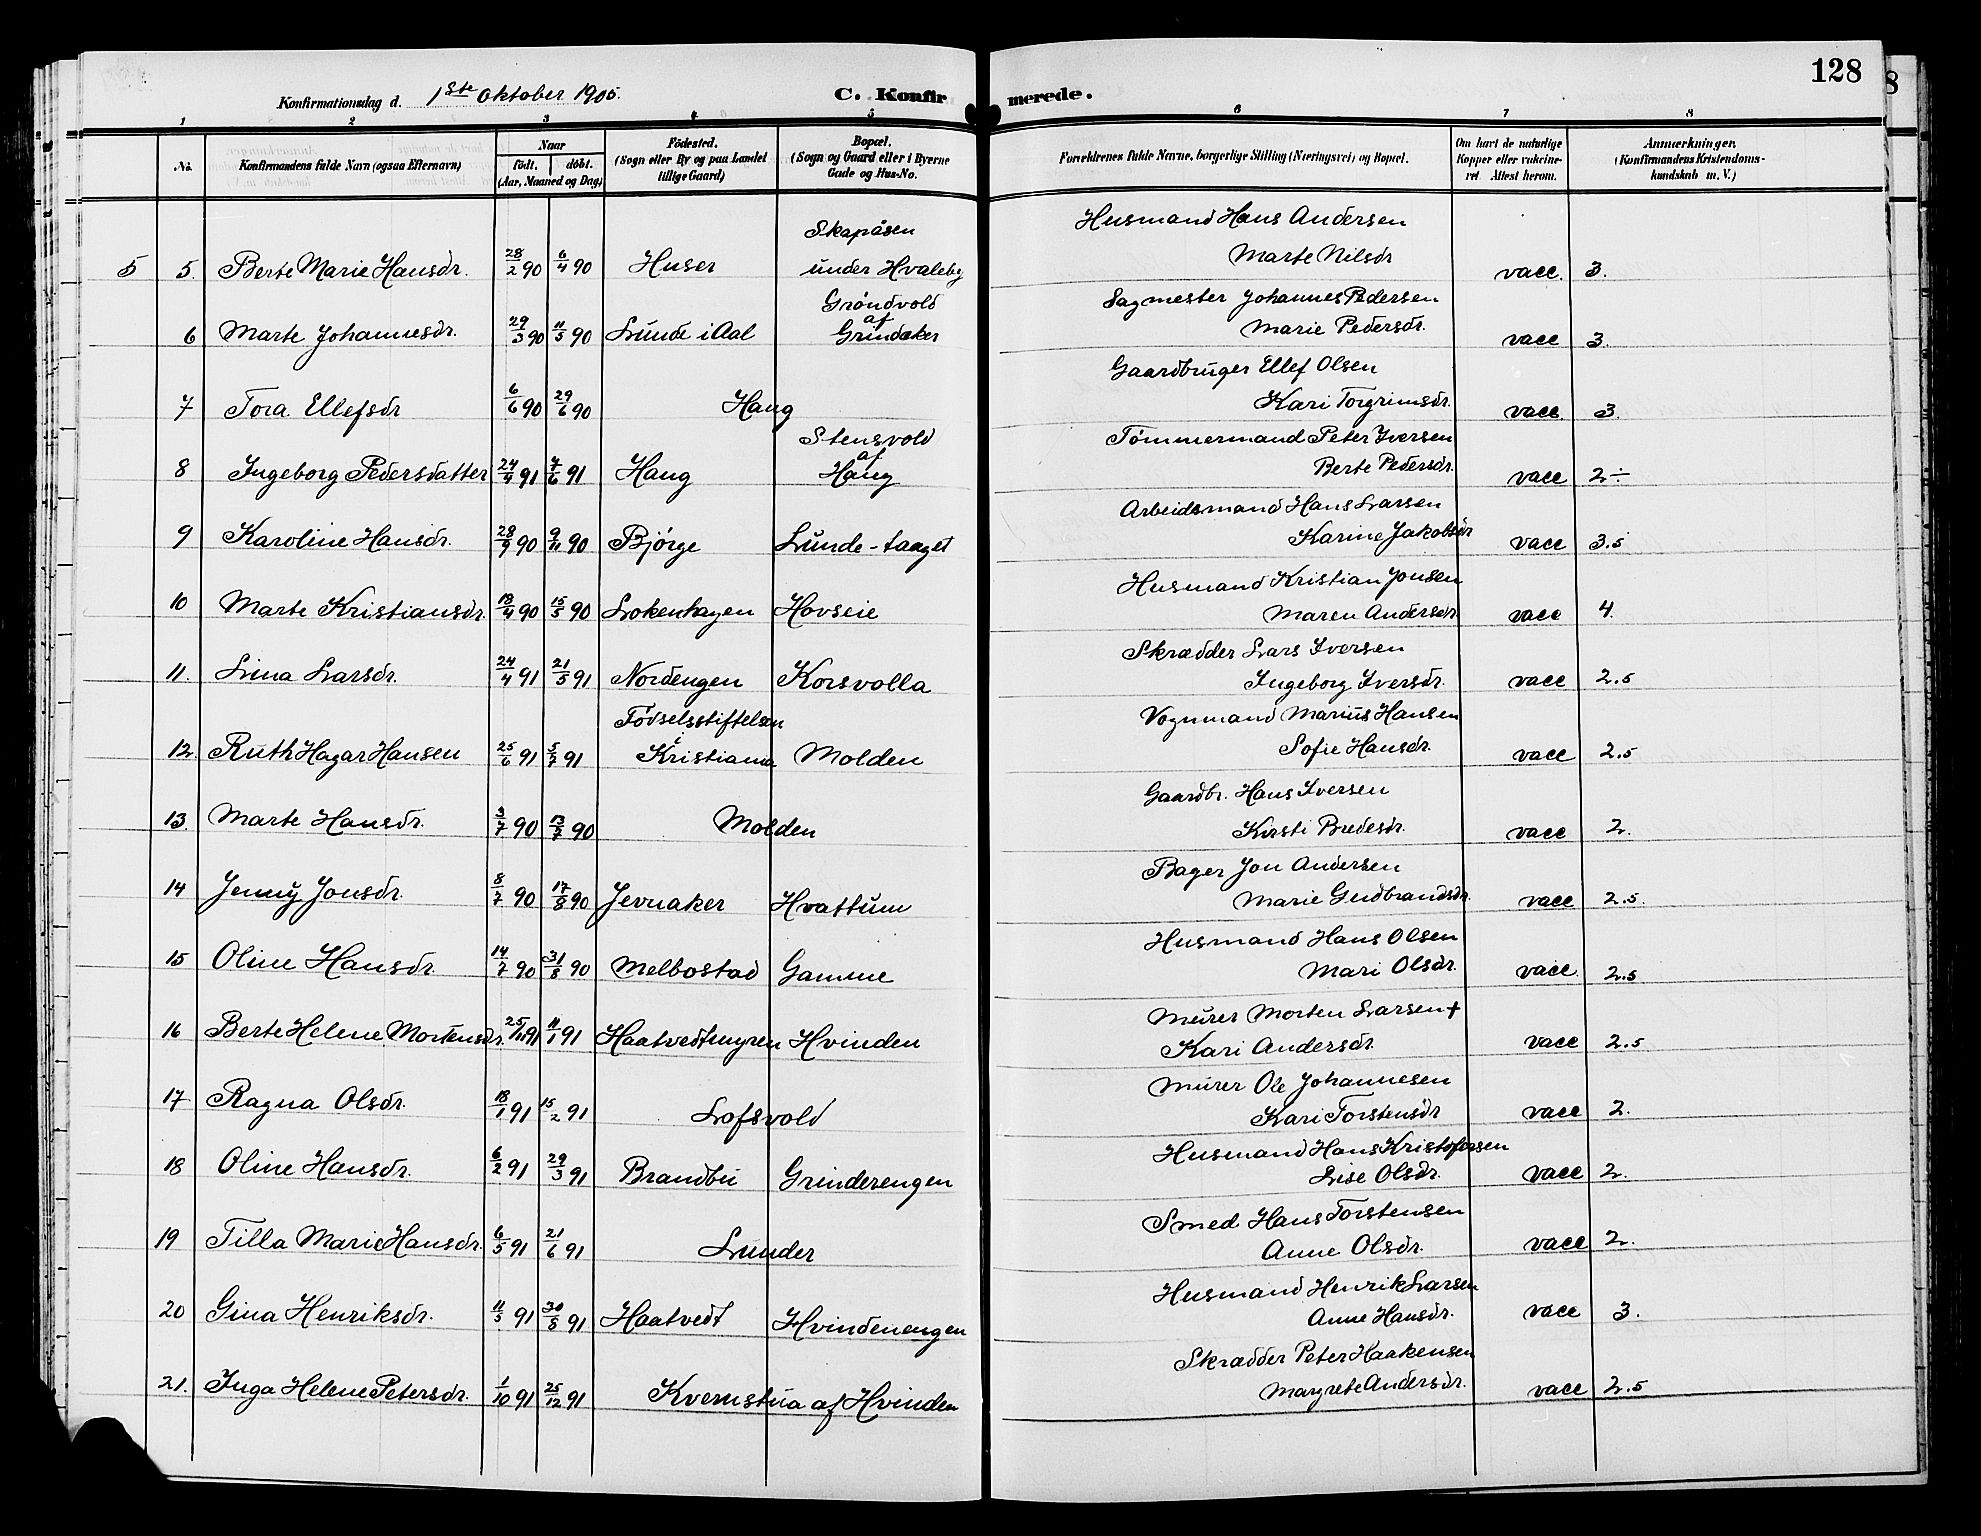 128
Konfirmationsdag d. 1ste Oktober 1905.
C. Konfirmerede.
1 2 3 4 5 6 7 8
No.
Konfirmandens fulde Navn (ogsaa Efternavn)
Naar
født. døbt.
(Aar, Maaned og Dag)
Fødested.
(Sogn eller By og paa Landet
tillige Gaard)
Bopæl.
(Sogn og Gaard eller i Byerne
Gade og Hus-No.
Forældrenes fulde Navne, borgerlige Stilling (Næringsvei) og Bopæl.
Om havt de naturlige
Kopper eller vakcine-
ret. Attest herom.
Anmærkninger.
(Konfirmandens Kristendoms-
kundskab m. V.)
Skapåsen Husmand Hans Andersen
5 5. Berte Marie Hansdr. 28/2 90 6/4 90 Huser under Hvaleby Marte Nilsdr vacc. 3.
Grøndvold Sagmester Johannes Pedersen
af
6 Marte Johannesdr. 29/3 90 11/5 90 Lunde i Aal Grindaker Marie Pedersdr. vacc 3.
Gaardbruger Ellef Olsen
7 Tora Ellefsdr 6/6 90 29/6 90 Haug Kari Torgrimsdr. vacc 3.
Stensvold Tømmermand Peter Iversen
af
8 Ingeborg Pedersdatter 24/4 91 7/6 91 Haug Haug Berte Pedersdr. vacc 2÷
Arbeidsmand Hans Larsen
9 Karoline Hansdr. 28/9 90 9/11 90 Bjørge Lunde-taaget Karine Jakobsdr vacc 3.5
Husmand Kristian Jonsen
10 Marte Kristiansdr. 18/4 90 15/5 90 Lokenhagen Hovseie Maren Andersdr vacc 4.
Skrædder Lars Iversen
11. Lina Larsdr. 24/4 91 21/5 91 Nordengen Korsvolla Ingeborg Iversdr. vacc 2.5
Fødselsstiftelsen Vognmand Marius Hansen
i
12 Ruth Hagar Hansen 25/6 91 5/7 91 Kristiania Molden Sofie Hansdr. vacc 2.5
Gaardbr. Hans Iversen
13. Marte Hansdr. 3/7 90 13/7 90 Molden Kirsti Bredesdr. vacc 2.
Bager Jon Andersen
14 Jenny Jonsdr. 8/7 90 17/8 90 Jevnaker Hvattum Marie Gudbrandsdr. vacc 2.5.
Husmand Hans Olsen
15 Oline Hansdr. 14/7 90 31/8 90 Melbostad Gamme Mari Olsdr. vacc. 2.5
Murer Morten Larsen +
16 Berte Helene Mortensdr. 91 11/1 91 Haatvedtmyren Hvinden Kari Andersdr. vacc 2.5
Murer Ole Johannesen
17 Ragna Olsdr. 18/1 91 15/2 91 Lofsvold Kari Torstensdr vacc 2.
Husmand Hans Kristofersen
18 Oline Hansdr. 6/2 91 29/3 91 Brandbu Grinderengen Lise Olsdr. vacc 2.
Smed Hans Torstensen
19 Tilla Marie Hansdr. 6/5 91 21/6 91 Lunder Anne Olsdr. vacc 2.
Husmand Henrik Larsen
20 Gina Henriksdr. 11/5 91 30/8 91 Haatvedt Hvindenengen Anne Hansdr. vacc 3.
Skrædder Peter Haakensen
21. Inga Helene Petersdr. 1/10 91 25/12 91 Kvernstua af Hvinden Margrete Andersdr. vacc 2.5